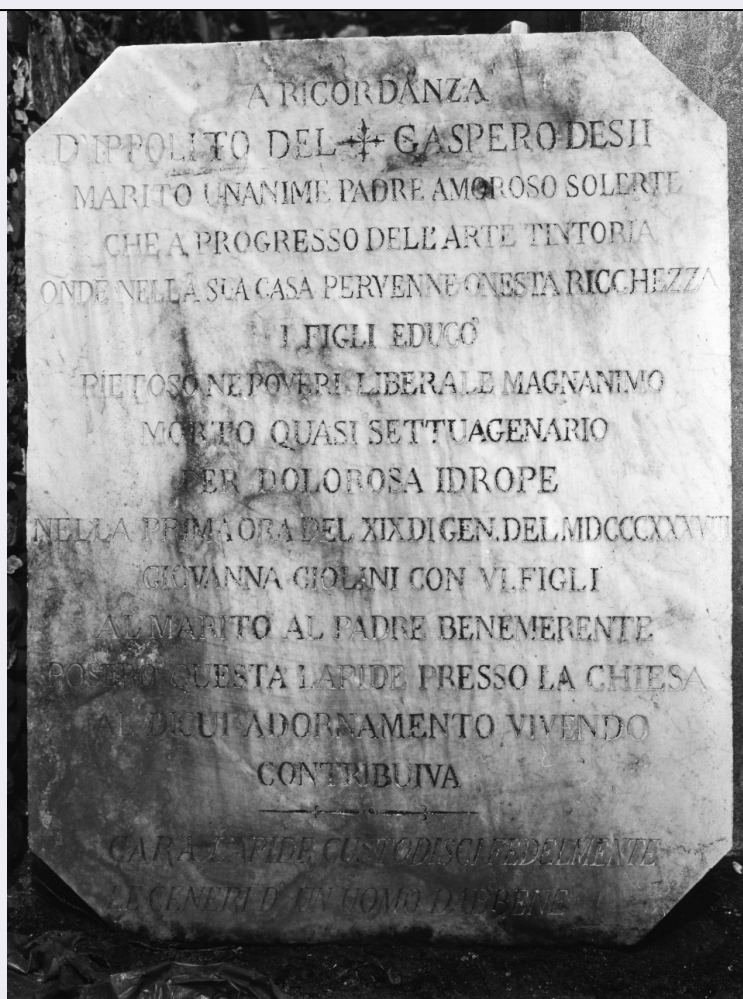 A RICORDANZA
D'IPPOLITO DEL ✢ GASPERO DESII
MARITO UNANIME PADRE AMOROSO SOLERTE
CHE A PROGRESSO DELL'ARTE TINTORIA
ONDE NELLA SUA CASA PERVENNE ONESTA RICCHEZZA
I FIGLI EDUCO'
PIETOSO NE POVERI LIBERALE MAGNANIMO
MORTO QUASI SETTUAGENARIO
PER DOLOROSA IDROPE
NELLA PRIMA ORA DEL XIX DI GEN. DEL
GIOVANNA GIOLINI CON VI. FIGLI
AL MARITO AL PADRE BENEMERENTE
POSERO QUESTA LAPIDE PRESSO LA CHIESA
AL DI CUI ADORNAMENTO VIVENDO
CONTRIBUIVA
CARA LAPIDE CUSTODISCI FEDELMENTE
LE CENERI D'UN UOMO DABBENE